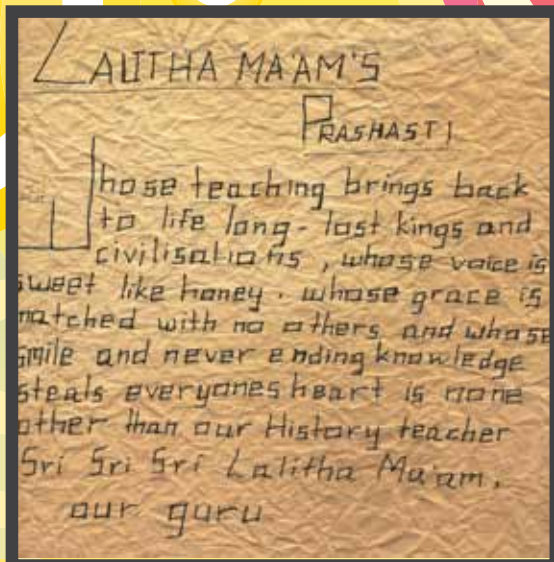 LALITHA MA'AM'S
PRASHASTI
Whose teaching brings back
to life long-lost kings and
civilisations, whose voice is
sweet like honey. whose grace is
matched with no others and whose
smile and never ending knowledge
steals everyones heart is none
other than our History teacher
Sri Sri Sri Lalitha Ma'am,
our guru